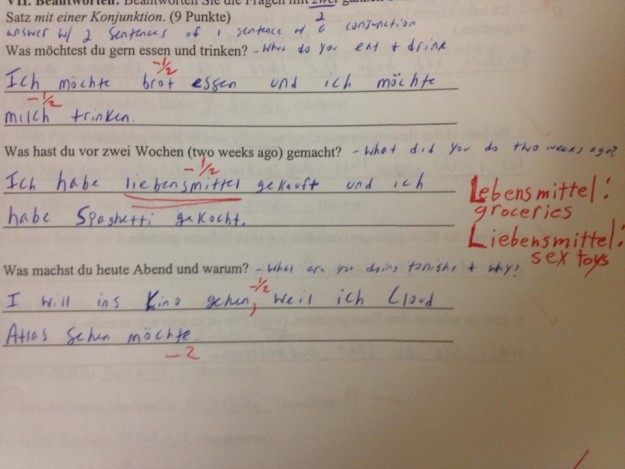 VII. Beantworten: Beantworten Sie die Fragen mit zwei
Satz mit einer Konjunktion. (9 Punkte)
2
answer w/ 2 sentences of 1 sentence w/ conjunction
Was möchtest du gern essen und trinken? - do you eat + drink
-½
Ich möchte brot essen und ich möchte
-½
milch trinken.
Was hast du vor zwei Wochen (two weeks ago) gemacht? - What did you do two weeks ago?
-½
Ich habe liebensmittel gekauft und ich
habe Spaghetti gekocht.
Lebensmittel:
groceries
Liebensmittel:
sex toys
Was machst du heute Abend und warum? - What are you doing tonight + why?
-½
I will ins Kino gehen, weil ich Cloud
Atlas sehen möchte.
-2